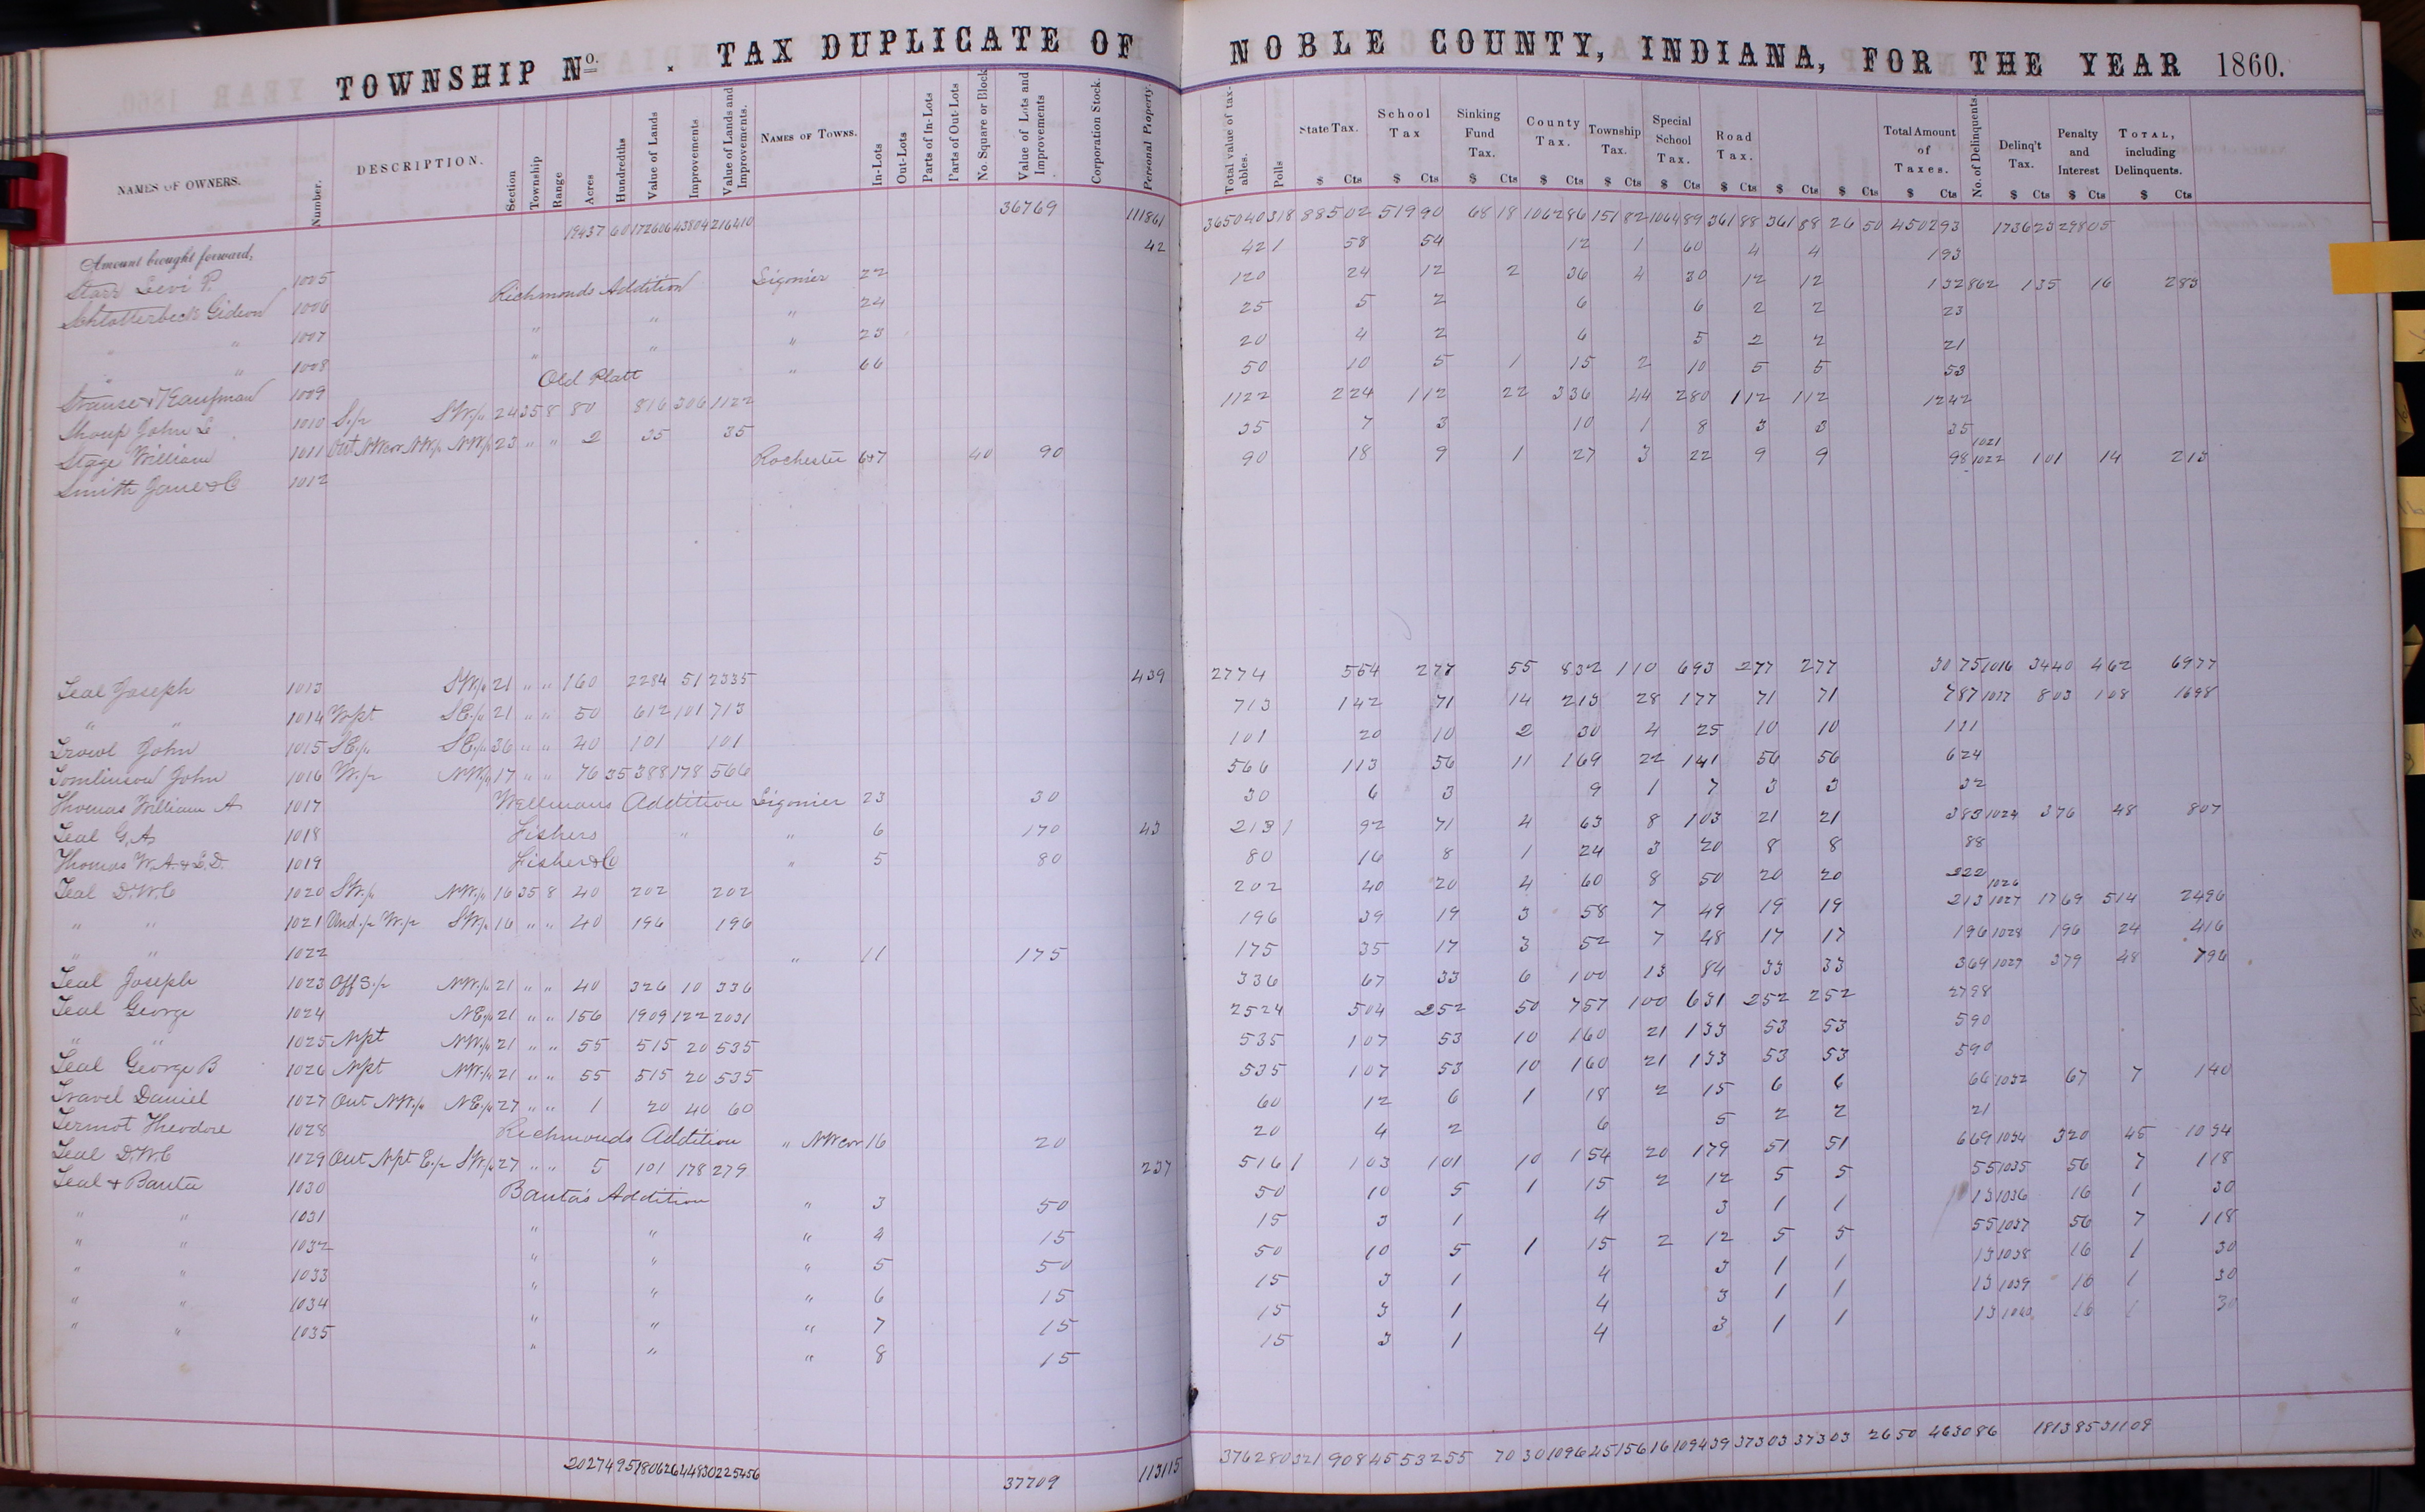 TOWNSHIP No. . TAX DUPLICATE OF NOBLE COUNTY, INDIANA, FOR THE YEAR 1860.
NAMES OF OWNERS. Number. DESCRIPTION. Section Township Range Acres Hundredths Value of Lands Improvements Value of Lands and Improvements. NAMES OF TOWNS. In-Lots Out-Lots Parts of In-Lots Parts of Out-Lots No. Square or Block Value of Lots and Improvements Corporation Stock. Personal Property. Total value of taxables. Polls State Tax. School Tax Sinking Fund Tax. County Tax. Township Tax. Special School Tax. Road Tax. Total Amount of Taxes. No. of Delinquents. Delinq't Tax. Penalty and Interest TOTAL, including Delinquents.
$ Cts $ Cts $ Cts $ Cts $ Cts $ Cts $ Cts $ Cts $ Cts $ Cts $ Cts $ Cts $ Cts
Amount brought forward, 19437 60 172606 43804 216410 36769 111861 365040 318 885 02 519 90 68 18 1062 86 151 82 1064 89 361 88 361 88 26 50 4502 93 1736 23 298 05
Starr Levi P. 1005 42 42 1 58 54 12 1 60 4 4 193
Schlotterbeck Gideon 1006 Richmonds Addition Ligonier 22 120 24 12 2 36 4 30 12 12 132 862 135 16 283
" " 1007 " " " 24 25 5 2 6 6 2 2 23
" " 1008 " " " 23 20 4 2 6 5 2 2 21
Strause & Kaufman 1009 Old Platt " 66 50 10 5 1 15 2 10 5 5 53
Shoup John L 1010 S.½ SW¼ 24 35 8 80 816 306 1122 1122 224 112 22 336 44 280 112 112 1242
Stage William 1011 Out NWcor NW¼ NW¼ 23 " " 2 35 35 35 7 3 10 1 8 3 3 35
Smith Jane & Co 1012 Rochester 6&7 40 90 90 18 9 1 27 3 22 9 9 98 1021 1022 101 14 213
Teal Joseph 1013 SW¼ 21 " " 160 2284 51 2335 439 2774 554 277 55 832 110 693 277 277 30 75 1016 3440 462 6977
" " 1014 Wpt SE¼ 21 " " 50 612 101 713 713 142 71 14 213 28 177 71 71 787 1017 803 108 1698
Trowl John 1015 SE¼ SE¼ 36 " " 40 101 101 101 20 10 2 30 4 25 10 10 111
Tomlinson John 1016 W.½ NW¼ 17 " " 76 35 388 178 566 566 113 56 11 169 22 141 56 56 624
Thomas William A 1017 Wellmans Addition Ligonier 23 30 30 6 3 9 1 7 3 3 32
Teal G.A. 1018 Fishers " " 6 170 43 213 1 92 71 4 63 8 103 21 21 383 1024 376 48 807
Thomas W.A. & L.D. 1019 Fisher & Co " 5 80 80 16 8 1 24 3 20 8 8 88
Teal D.W.C 1020 SW¼ NW¼ 16 35 8 40 202 202 202 40 20 4 60 8 50 20 20 222
" " 1021 Und.½ W.½ SW¼ 16 " " 40 196 196 196 39 19 3 58 7 49 19 19 213 1026 1027 1769 514 2496
" " 1022 " 11 175 175 35 17 3 52 7 48 17 17 196 1028 196 24 416
Teal Joseph 1023 Off S.½ NW¼ 21 " " 40 326 10 336 336 67 33 6 100 13 84 33 33 369 1029 379 48 796
Teal George 1024 NE¼ 21 " " 156 1909 122 2031 2524 504 252 50 757 100 631 252 252 2798
" " 1025 Npt NW¼ 21 " " 55 515 20 535 535 107 53 10 160 21 133 53 53 590
Teal George B 1026 Npt NW¼ 21 " " 55 515 20 535 535 107 53 10 160 21 133 53 53 590
Travel Daniel 1027 Out NW¼ NE¼ 27 " " 1 20 40 60 60 12 6 1 18 2 15 6 6 66 1032 67 7 140
Termot Theodore 1028 Richmonds Addition " NWcor 16 20 20 4 2 6 5 2 2 21
Teal D.W.C 1029 Out Npt E.½ SW¼ 27 " " 5 101 178 279 237 516 1 103 101 10 154 20 179 51 51 669 1034 320 45 1034
Teal & Banta 1030 Banta's Addition " 3 50 50 10 5 1 15 2 12 5 5 55 1035 56 7 118
" " 1031 " " " 4 15 15 3 1 4 3 1 1 13 1036 16 1 30
" " 1032 " " " 5 50 50 10 5 1 15 2 12 5 5 55 1037 56 7 118
" " 1033 " " " 6 15 15 3 1 4 3 1 1 13 1038 16 1 30
" " 1034 " " " 7 15 15 3 1 4 3 1 1 13 1039 16 1 30
" " 1035 " " " 8 15 15 3 1 4 3 1 1 13 1040 16 1 30
20274 95 180626 44830 225456 37709 113115 376280 321 908 45 532 55 70 30 1096 45 156 16 1094 39 373 03 373 03 26 50 4630 86 1813 85 311 09